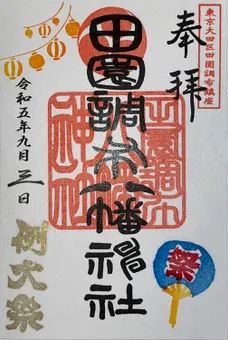 東京大田区田園調布鎮座
奉拝
田園調布八幡神社
田園調布八幡神社
令和五年九月三日
例大祭
祭